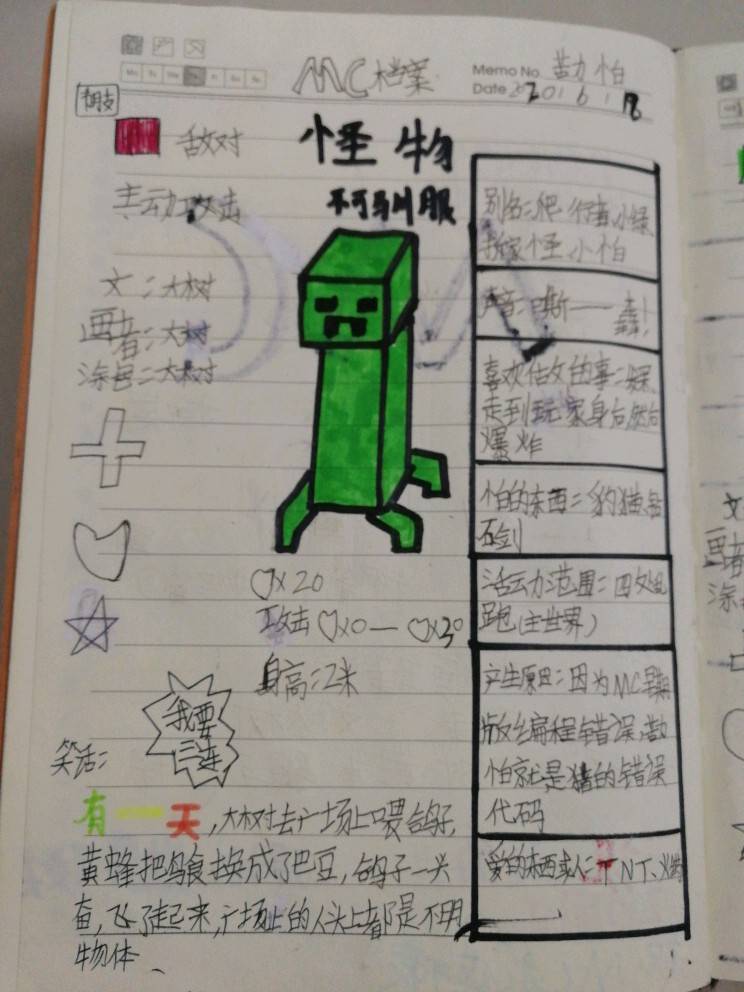 MC档案
Memo No. 苦力怕
Date 2020 / 6 / 18
Mo Tu We Th Fr Sa Su
敌对
怪物
主动攻击
不可驯服
文:大树
画者:大树
涂色:大树
别名:爬行者,小绿
拆家怪,小怕
声音:嘶——轰!
喜欢做的事:
走到玩家身后然后
爆炸
怕的东西:豹猫,钻
石剑
活动范围:四处乱
跑(主世界)
产生原因:因为MC早期
版编程错误,苦力
怕就是猪的错误
代码
爱的东西或人:TNT、火
♡×20
攻击♡×0—♡×30
身高:2米
我要
三连
笑话:
有一天,大树去广场上喂鸽子,
黄蜂把鸟食换成了巴豆,鸽子一兴
奋,飞了起来,广场上的人头上都是不明
物体、
文
画者
涂